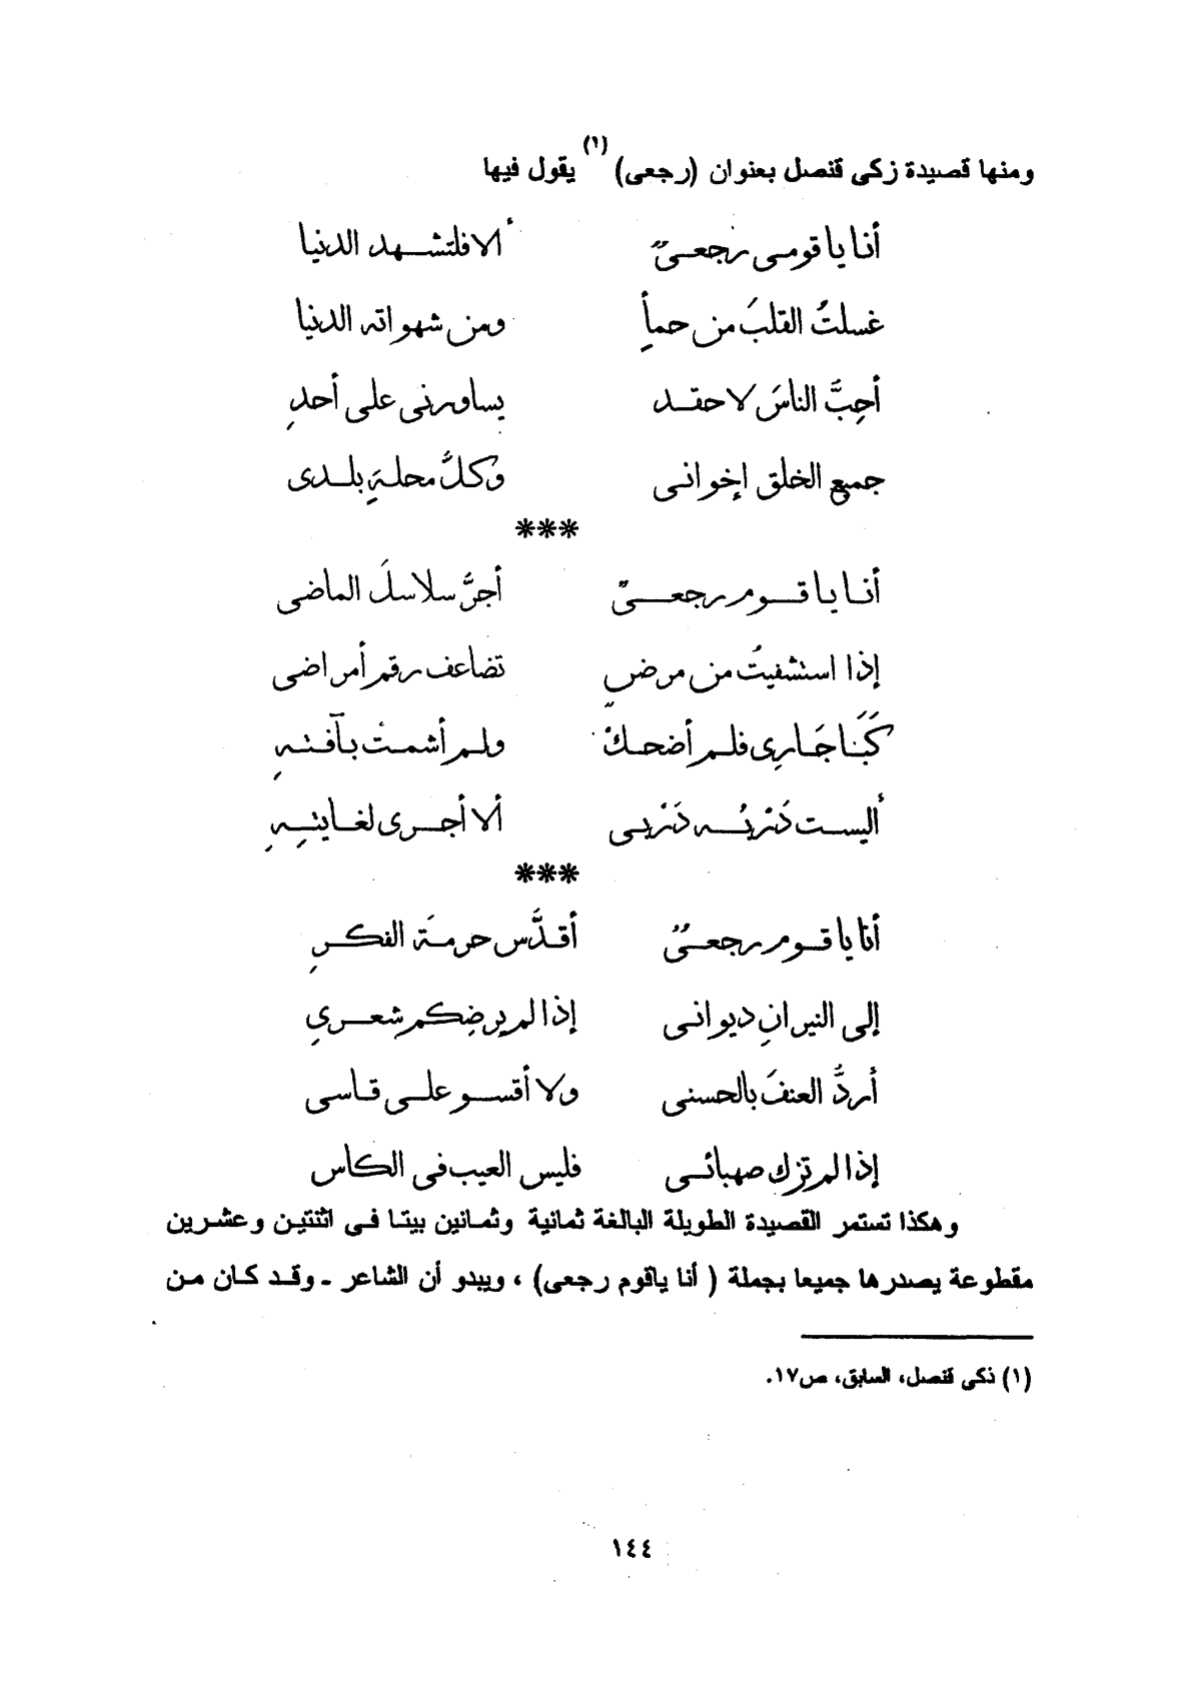 ومنها قصيدة زكى قنصل بعنوان (رجعى) (١) يقول فيها
أنا يا قومى رجعىٌّ ألا فلتشهد الدنيا
غسلتُ القلبَ من حمأٍ ومن شهواته الدنيا
أحِبَّ الناسَ لا حقد يساورنى على أحدِ
جميع الخلق إخوانى وكلُّ محلةٍ بلدى
***
أنا يا قوم رجعىّ أجرُّ سلاسلَ الماضى
إذا استشفيتُ من مرضٍ تضاعف رقم أمراضى
كَبَا جَارِى فلم أضحكْ ولم أشمتْ بآفتهِ
أليست دَرْبُه دَرْبى ألا أجرى لغايتِهِ
***
أنا يا قوم رجعىٌّ أقدَّس حرمَة الفكرِ
إلى النيرانِ ديوانى إذا لم يرضِكم شعرىِ
أردُّ العنفَ بالحسنى ولا أقسو على قاسى
إذا لم تزك صهبائى فليس العيب فى الكاس
وهكذا تستمر القصيدة الطويلة البالغة ثمانية وثمانين بيتا فى اثنتين وعشرين
مقطوعة يصدرها جميعا بجملة ( أنا ياقوم رجعى) ، ويبدو أن الشاعر ـ وقد كان من
(١) ذكى قنصل، السابق، ص١٧.
١٤٤